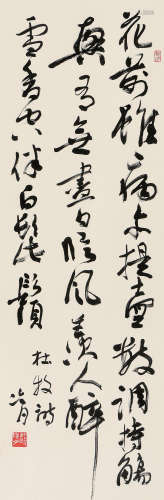 花前雖病亦提壺數調持觴
興有無盡日臨風羨人醉
雪香空伴白髭鬚
杜牧詩